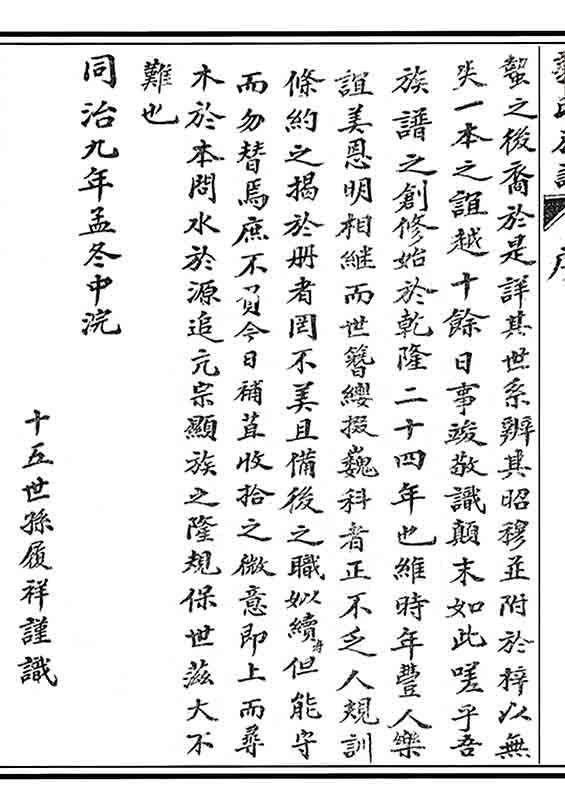 序
蟄之後裔於是詳其世系辨其昭穆並附於梓以無
失一本之誼越十餘日事竣敬識顛末如此嗟乎吾
族譜之創修始於乾隆二十四年也維時年豐人樂
誼美恩明相繼而世簪纓掇巍科者正不乏人規訓
條約之揭於册者罔不美且備後之職姒續者但能守
而勿替焉庶不負今日補苴收拾之微意即上而尋
木於本問水於源追元宗顯族之隆規保世滋大不
難也
同治九年孟冬中浣
十五世孫履祥謹識